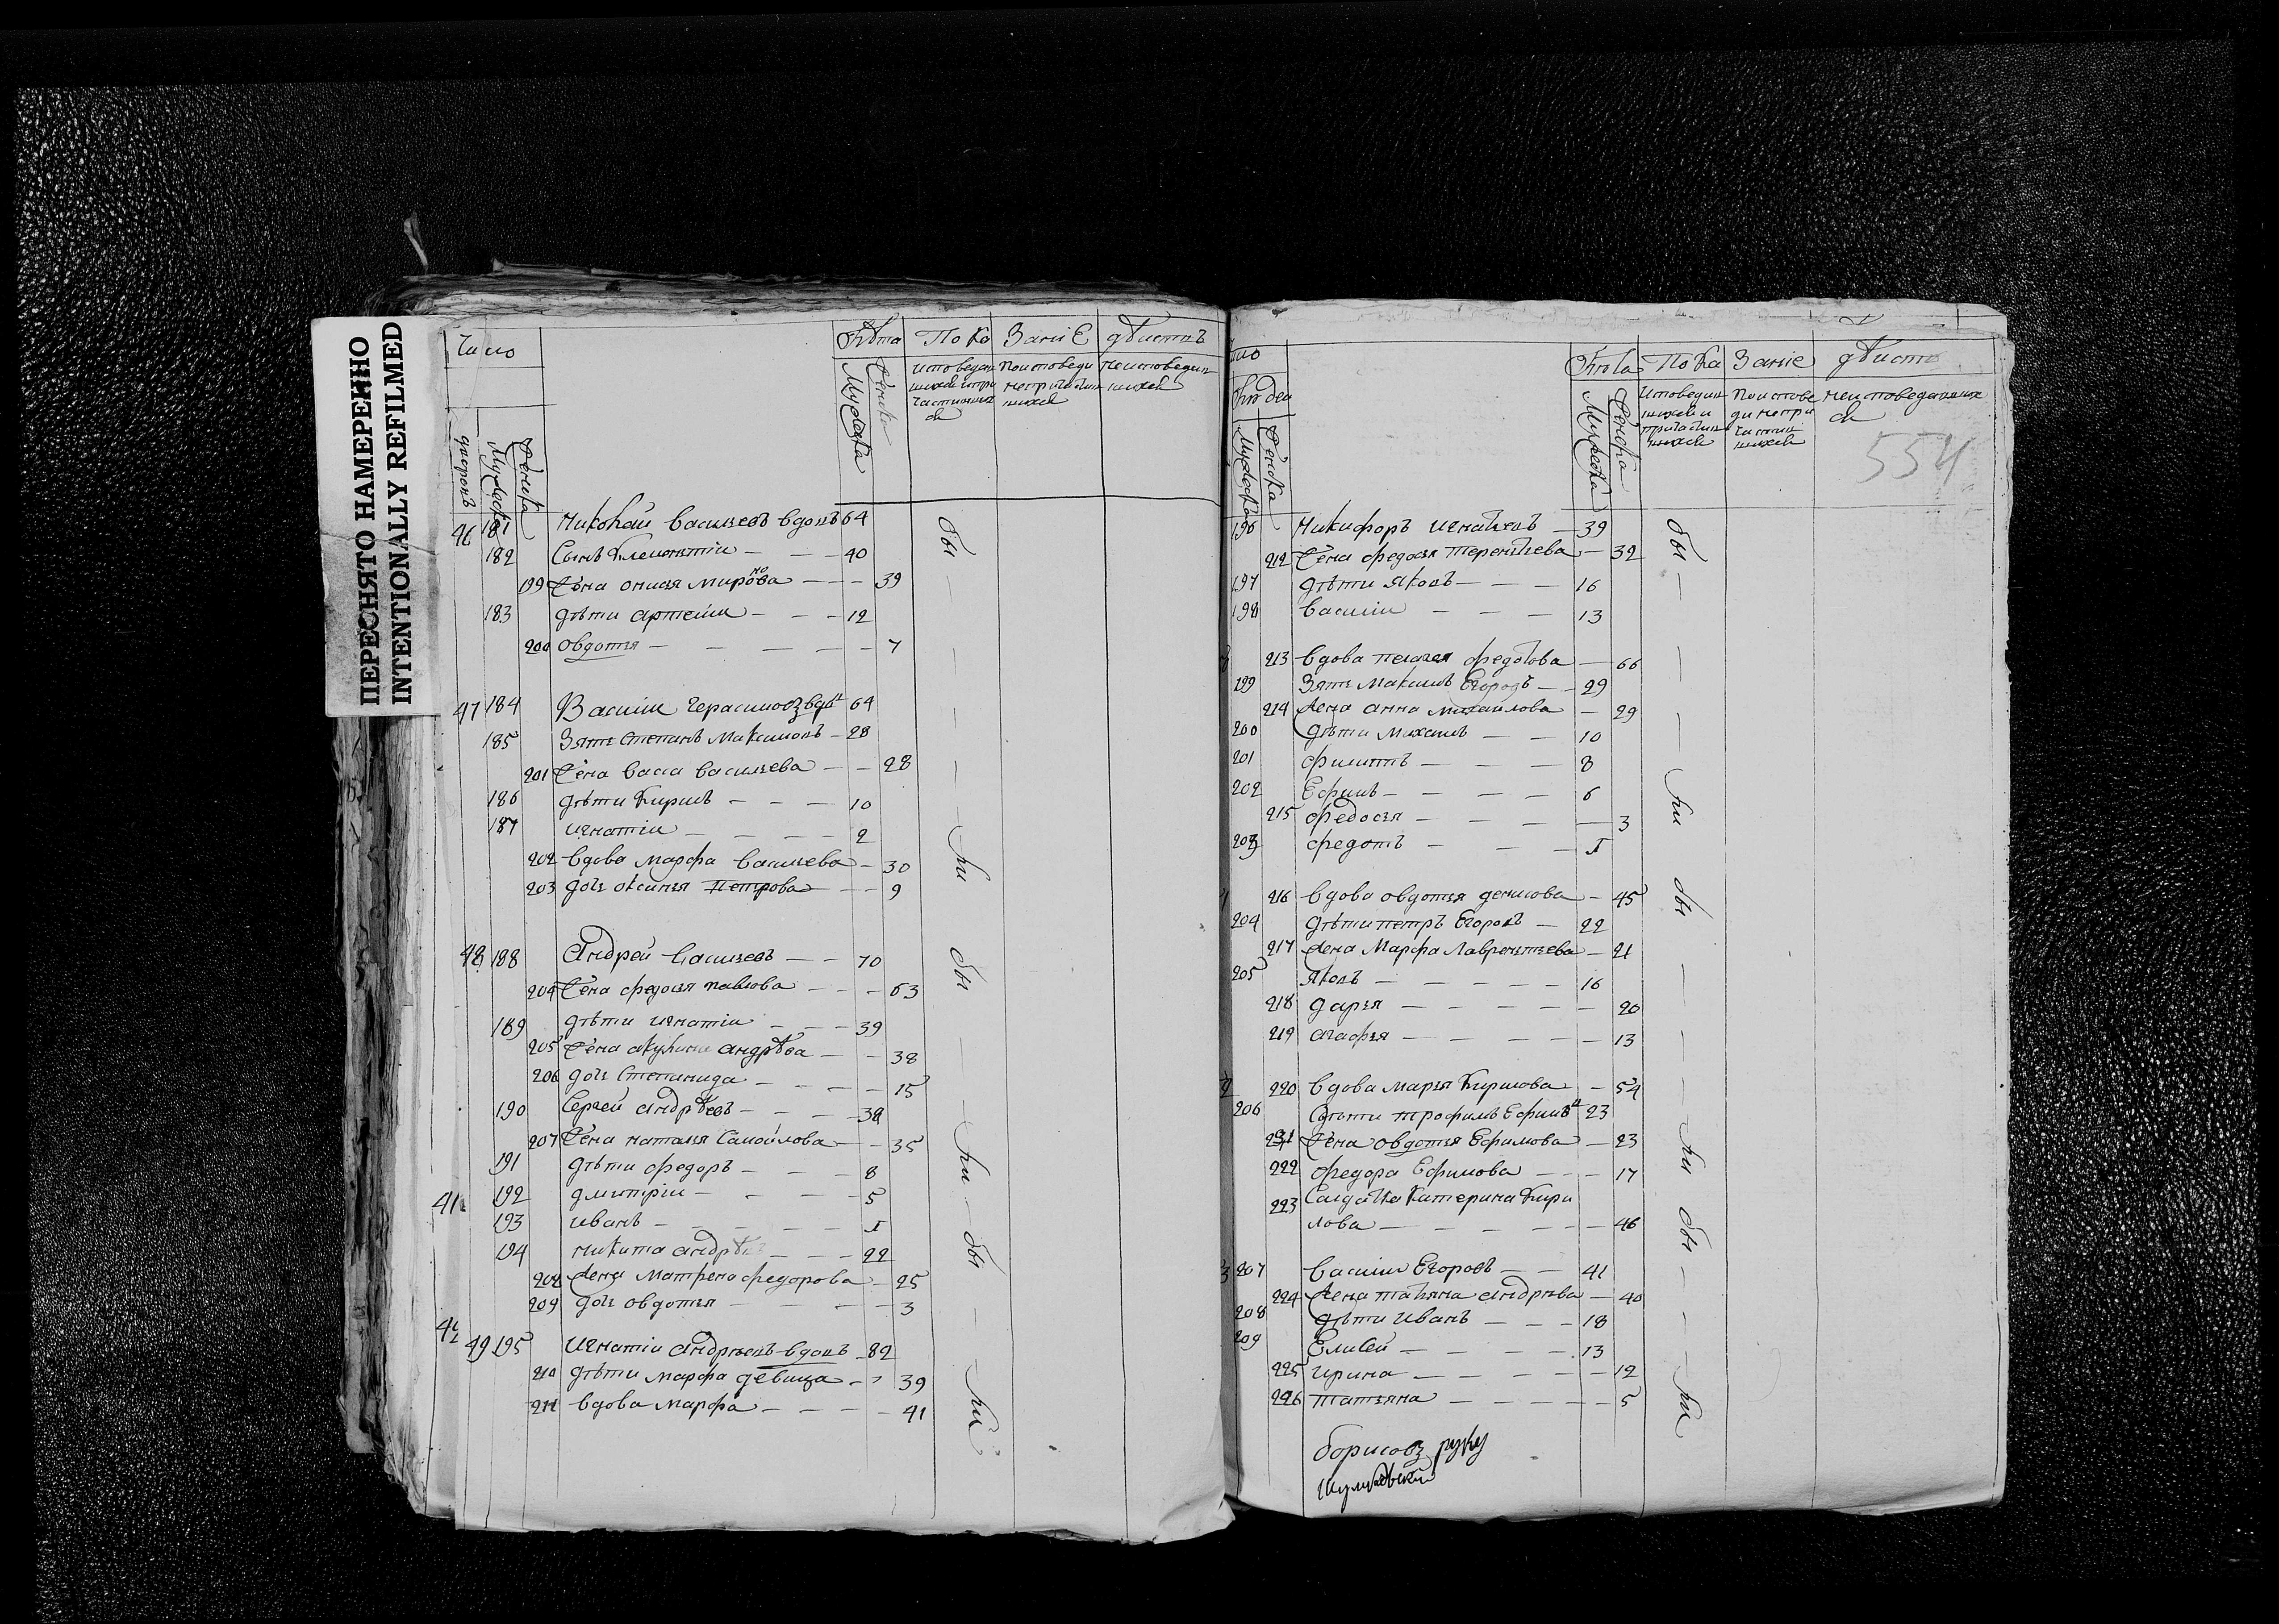 ПЕРЕСНЯТО НАМЕРЕННО
INTENTIONALLY REFILMED
Число
Лѣта Пока Занiе дѣиств
дворовъ Мужеска Женска Мужеска Женска
46 181 Николай Васильевъ вдовъ 64
182 Сынъ Клементiи — — 40
199 Жена Мироно ва — — 39
183 дѣти артемiи — — 12
200 овдотья — — — — — 7
47 184 Василiи Герасимовъ вдв 64
185 Зять Степанъ Максимовъ — 28
201 Жена Васса Васильева — — 28
186 дѣти Кирилъ — — — 10
187 игнатiи — — — — 2
202 вдова марфа Васильева — 30
203 дочь оксинья Петрова — — 9
48 188 Андрей Васильевъ — — 70
204 Жена федосья павлова — — 63
189 дѣти игнатiи — — — 39
205 Жена акулина андрѣва — — 38
206 дочь Степанида — — — — 15
190 Сергей андрѣевъ — — — 38
207 Жена наталья Самойлова — — 35
191 дѣти федоръ — — — 8
41 192 дмитрiи — — — — 5
193 иванъ — — — — —
194 никита андрѣ — — — 22
208 Жена Матрена федорова — 25
209 дочь овдотья — — — 3
42
49 195 Игнатiи андрѣевъ вдовъ — 82
210 дѣти марфа девица — — 39
211 вдова марфа — — — — 41
бы — — — — — ли бы — — ли — бы — ли
Лѣта Пока Занiе дѣиств
Мужеска Женска Мужеска Женска
554
196 Никифоръ игнатьевъ — 39
212 Жена федосья терентьева — 32
197 дѣти яковъ — — — 16
198 василiи — — — 13
213 вдова пелагея федотова — 66
199 Зять Максимъ Егоровъ — — 29
214 Жена анна михайлова — 29
200 дѣти Михаилъ — — 10
201 филиппъ — — — 8
202 Ефимъ — — — — 6
215 федосья — — — — 3
203 федотъ — — —
216 вдова овдотья денисова — 45
204 дѣти петръ Егоровъ — 22
217 Жена Марфа Лаврентьева — 21
205 яковъ — — — — — 16
218 дарья — — — — — 20
219 агафья — — — — — 13
220 вдова марья Кирилова — 54
206 дѣти трофимъ Ефимв 23
221 Жена овдотья Ефимова — 23
222 федора Ефимова — — — 17
223 Салдатка Катерина Кири
лова — — — — — — 46
207 василiи Егоровъ — — 41
224 Жена татьяна андрѣва — 40
208 дѣти Иванъ — — — 18
209 Елисей — — — — 13
225 ирина — — — — — 12
226 татьяна — — — — — 5
бы — — — ли бы — — — ли бы — — — ли
борисовъ руку